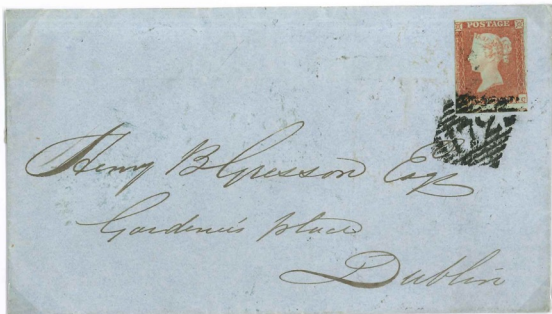 POSTAGE
Henry B Gresson Esqr
Gardiner's place
Dublin